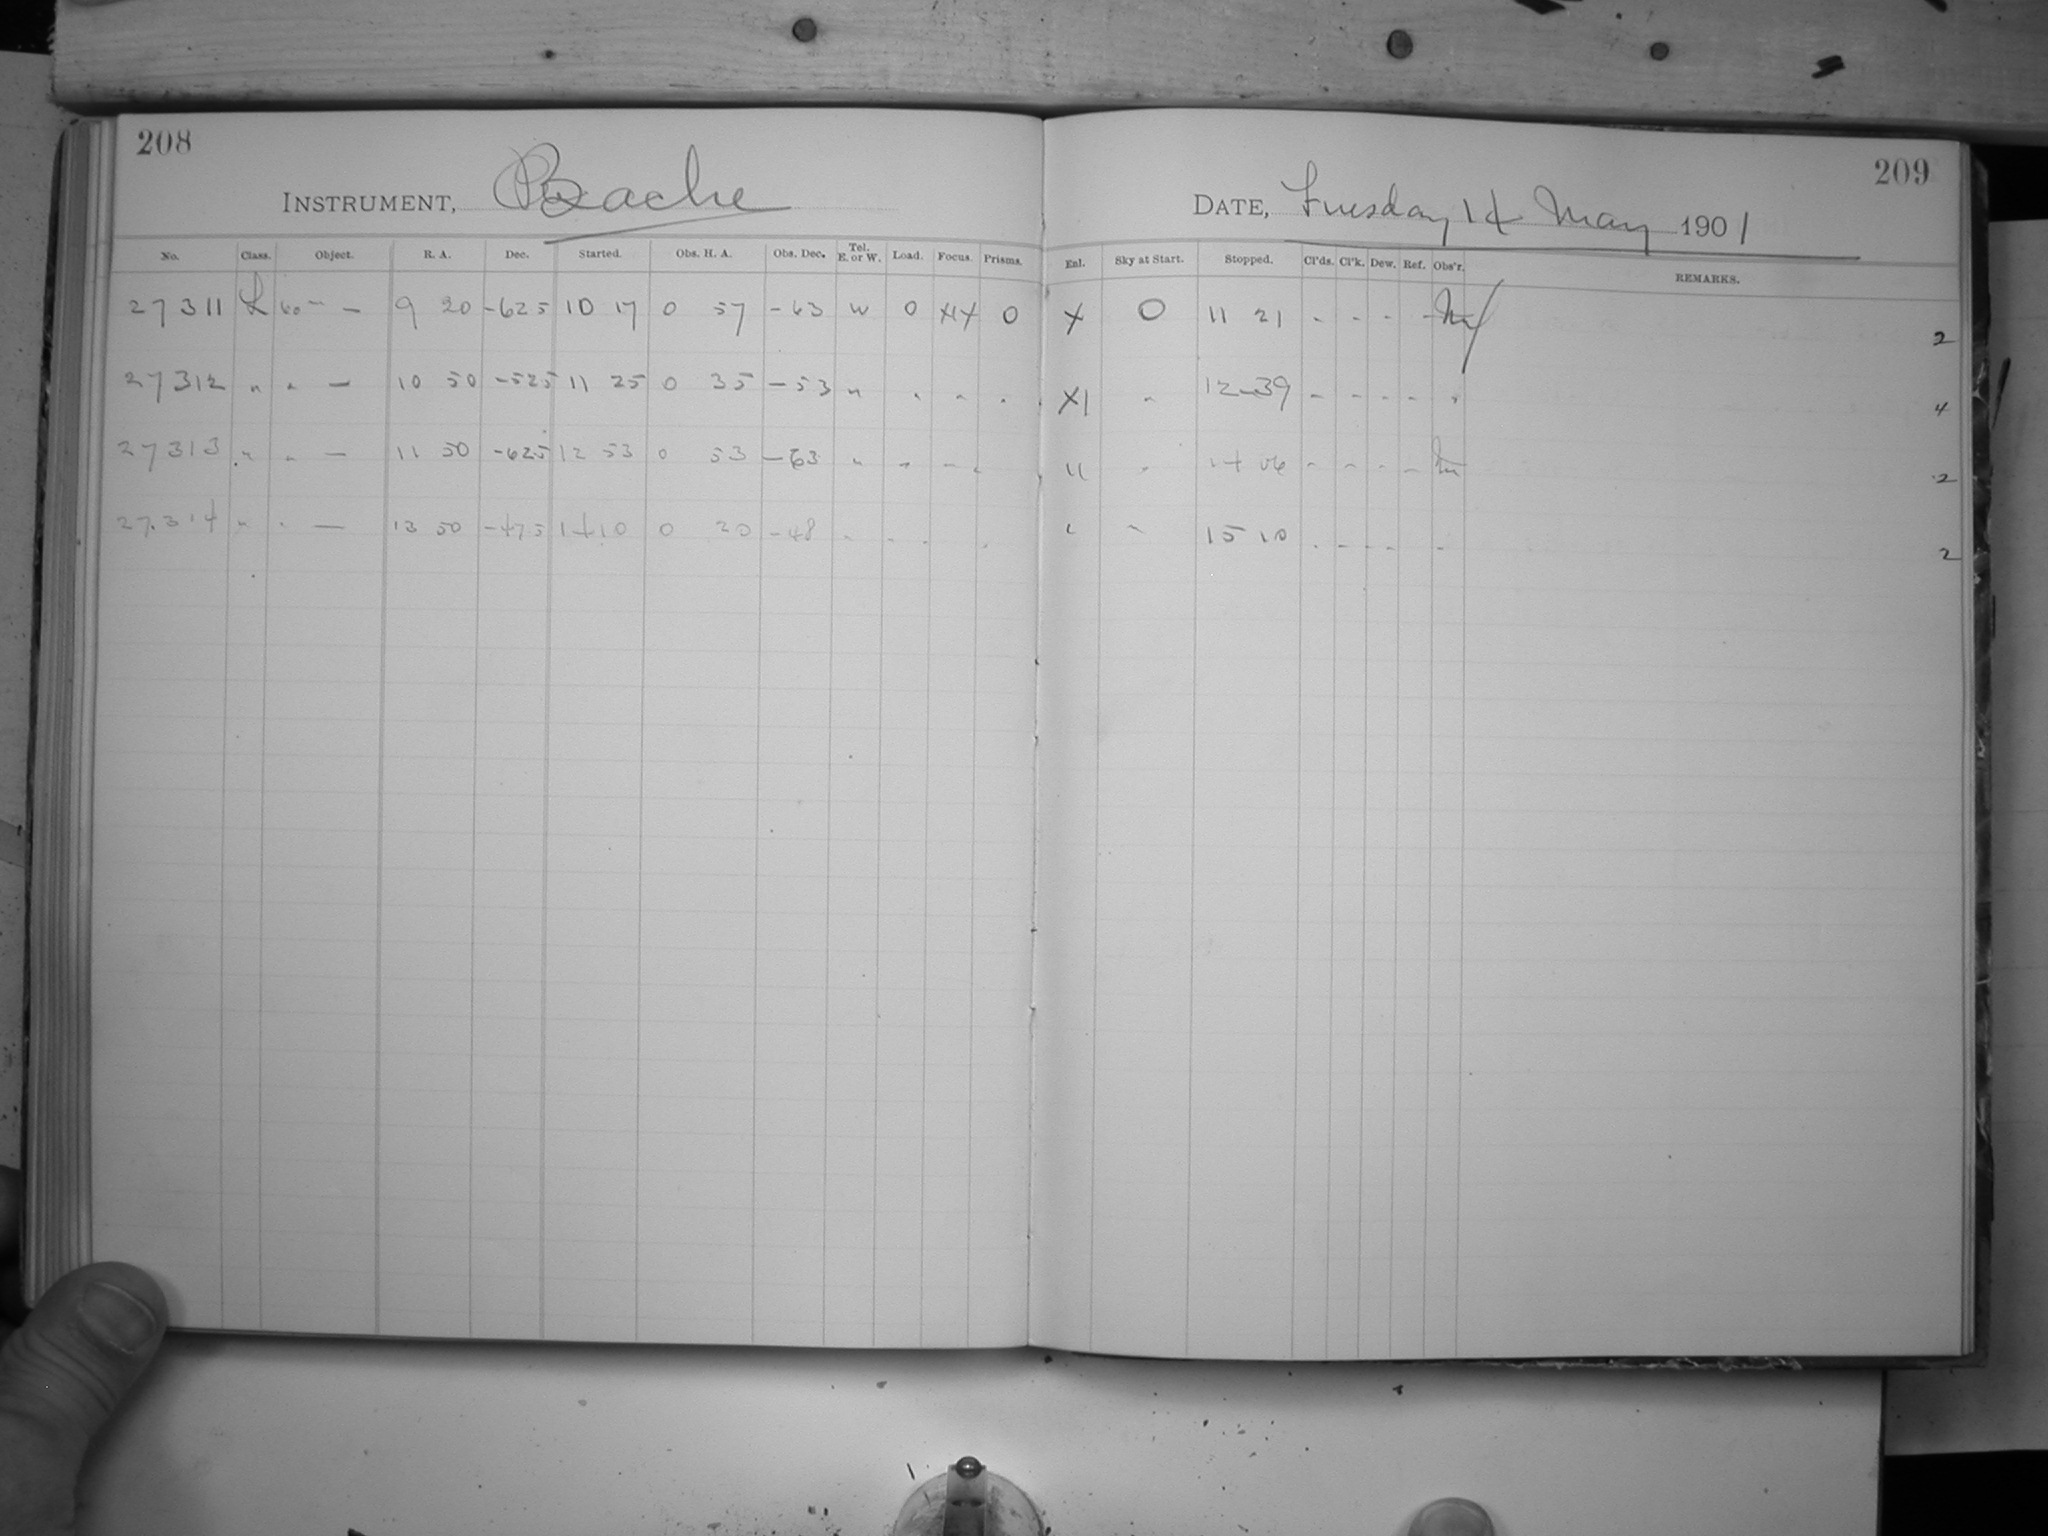 208
INSTRUMENT, Bache
No. Class. Object. R. A. Dec. Started. Obs. H. A. Obs. Dec. Tel. E. or W. Load. Focus. Prisms.
27311 L 60m — 9 20 -625 10 17 0 57 -63 W 0 0
27312 " " — 10 50 -525 11 25 0 35 -53 "
27313 " " — 11 50 -625 12 53 0 53 -63 "
27314 " " — 13 50 -475 14 10 0 20 -48
209
DATE, Tuesday 14 May 1901
Enl. Sky at Start. Stopped. Cl'ds. Cl'k. Dew. Ref. Obs'r. REMARKS.
X 0 11 21 - - - - 2
XI " 12-39 - - - - " 4
" " 14 06 - - - - 2
" " 15 10 - - - - 2